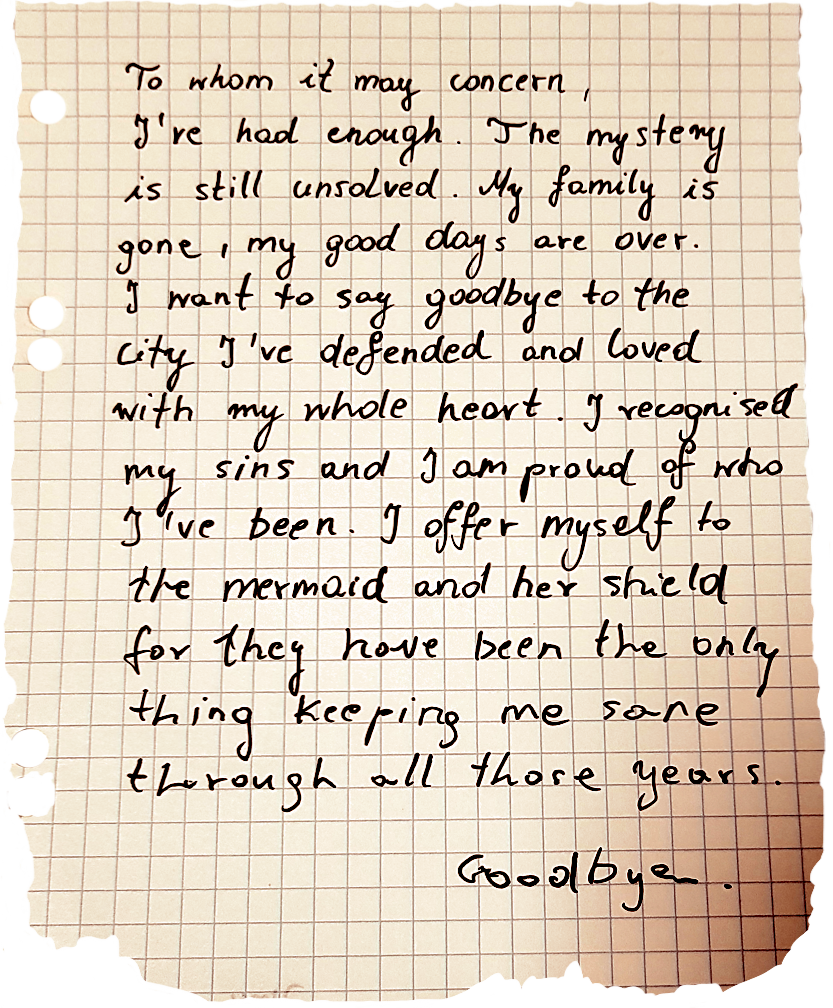 To whom it may concern,
I've had enough. The mystery
is still unsolved. My family is
gone, my good days are over.
I want to say goodbye to the
city I've defended and loved
with my whole heart. I recognised
my sins and I am proud of who
I've been. I offer myself to
the mermaid and her shield
for they have been the only
thing keeping me sane
through all those years.
Goodbye.